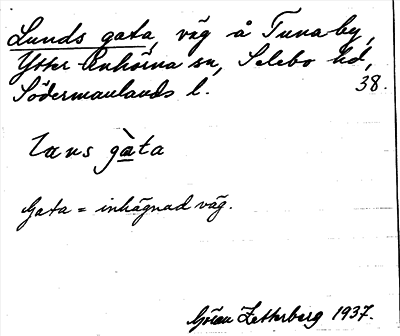 Lunds gata, väg å Tuna by,
Ytter Enhörna sn, Selebo hd,
Södermanlands l. 38.
gàta
Gata = inhägnad väg.
Göran Zetterberg 1937.